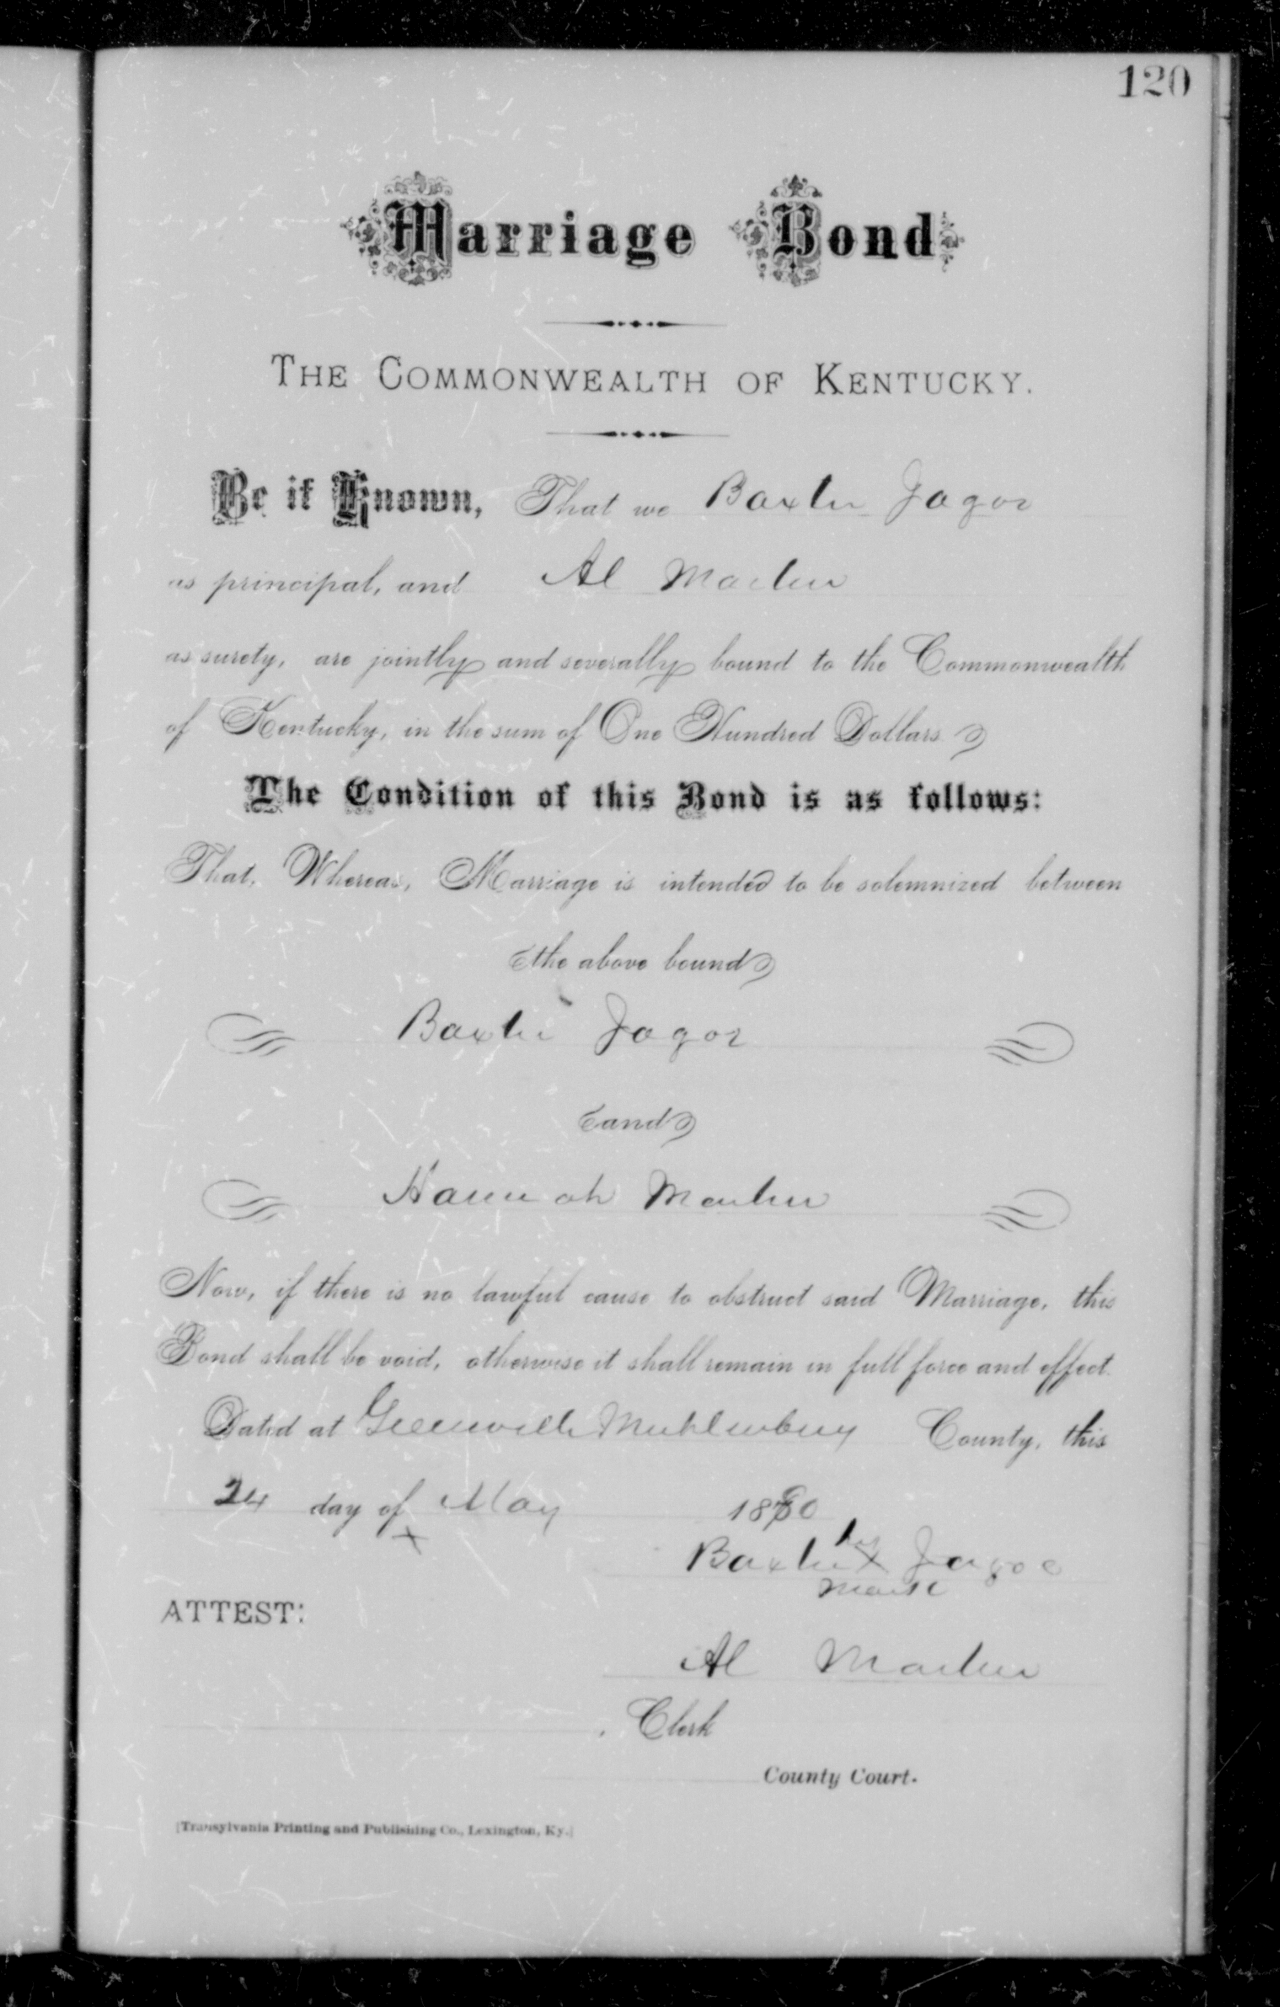 120
Marriage Bond
THE COMMONWEALTH OF KENTUCKY.
Be it Known, That we Baxter Jagoe
as principal, and Al Martin
as surety, are jointly and severally bound to the Commonwealth
of Kentucky, in the sum of One Hundred Dollars
The Condition of this Bond is as follows:
That, Whereas, Marriage is intended to be solemnized between
the above bound
Baxter Jagoe
and
Hannah Martin
Now, if there is no lawful cause to obstruct said Marriage, this
Bond shall be void, otherwise it shall remain in full force and effect.
Dated at Greenville Muhlenburg County, this
24 day of May 1880
x
Baxter his x Jagoe
mark
ATTEST:
Al Martin
, Clerk
County Court.
[Transylvania Printing and Publishing Co., Lexington, Ky.]